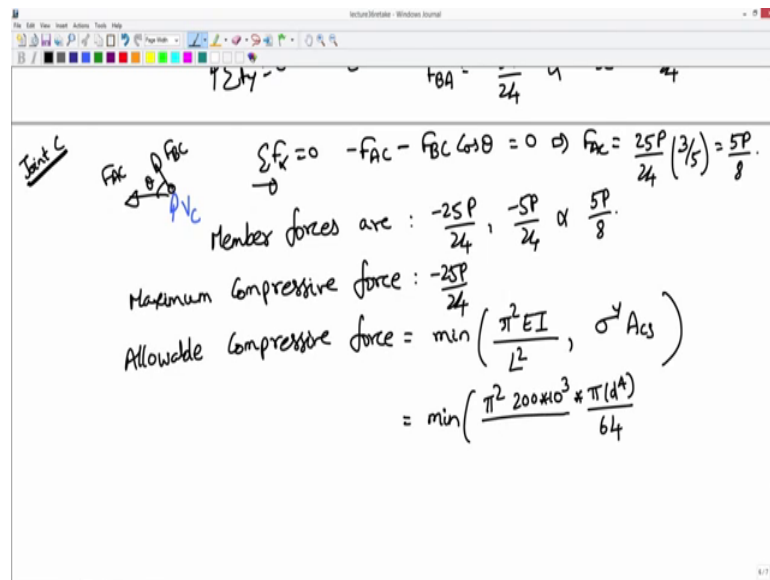 lecture36retake - Windows Journal
File Edit View Insert Actions Tools Help
Page Width
B I
↑ΣFy=0 FBA = 24 24
Joint C
FAC θ FBC VC
Σfx=0 -FAC - FBC Cosθ = 0 ⇒ FAC = 25P/24 (3/5) = 5P/8.
Member forces are : -25P/24, -5P/24 & 5P/8.
Maximum Compressive force : -25P/24
Allowable Compressive force = min(π²EI/L², σʸ Acs)
= min(π² 200*10³ * π(d⁴)/64
6/7